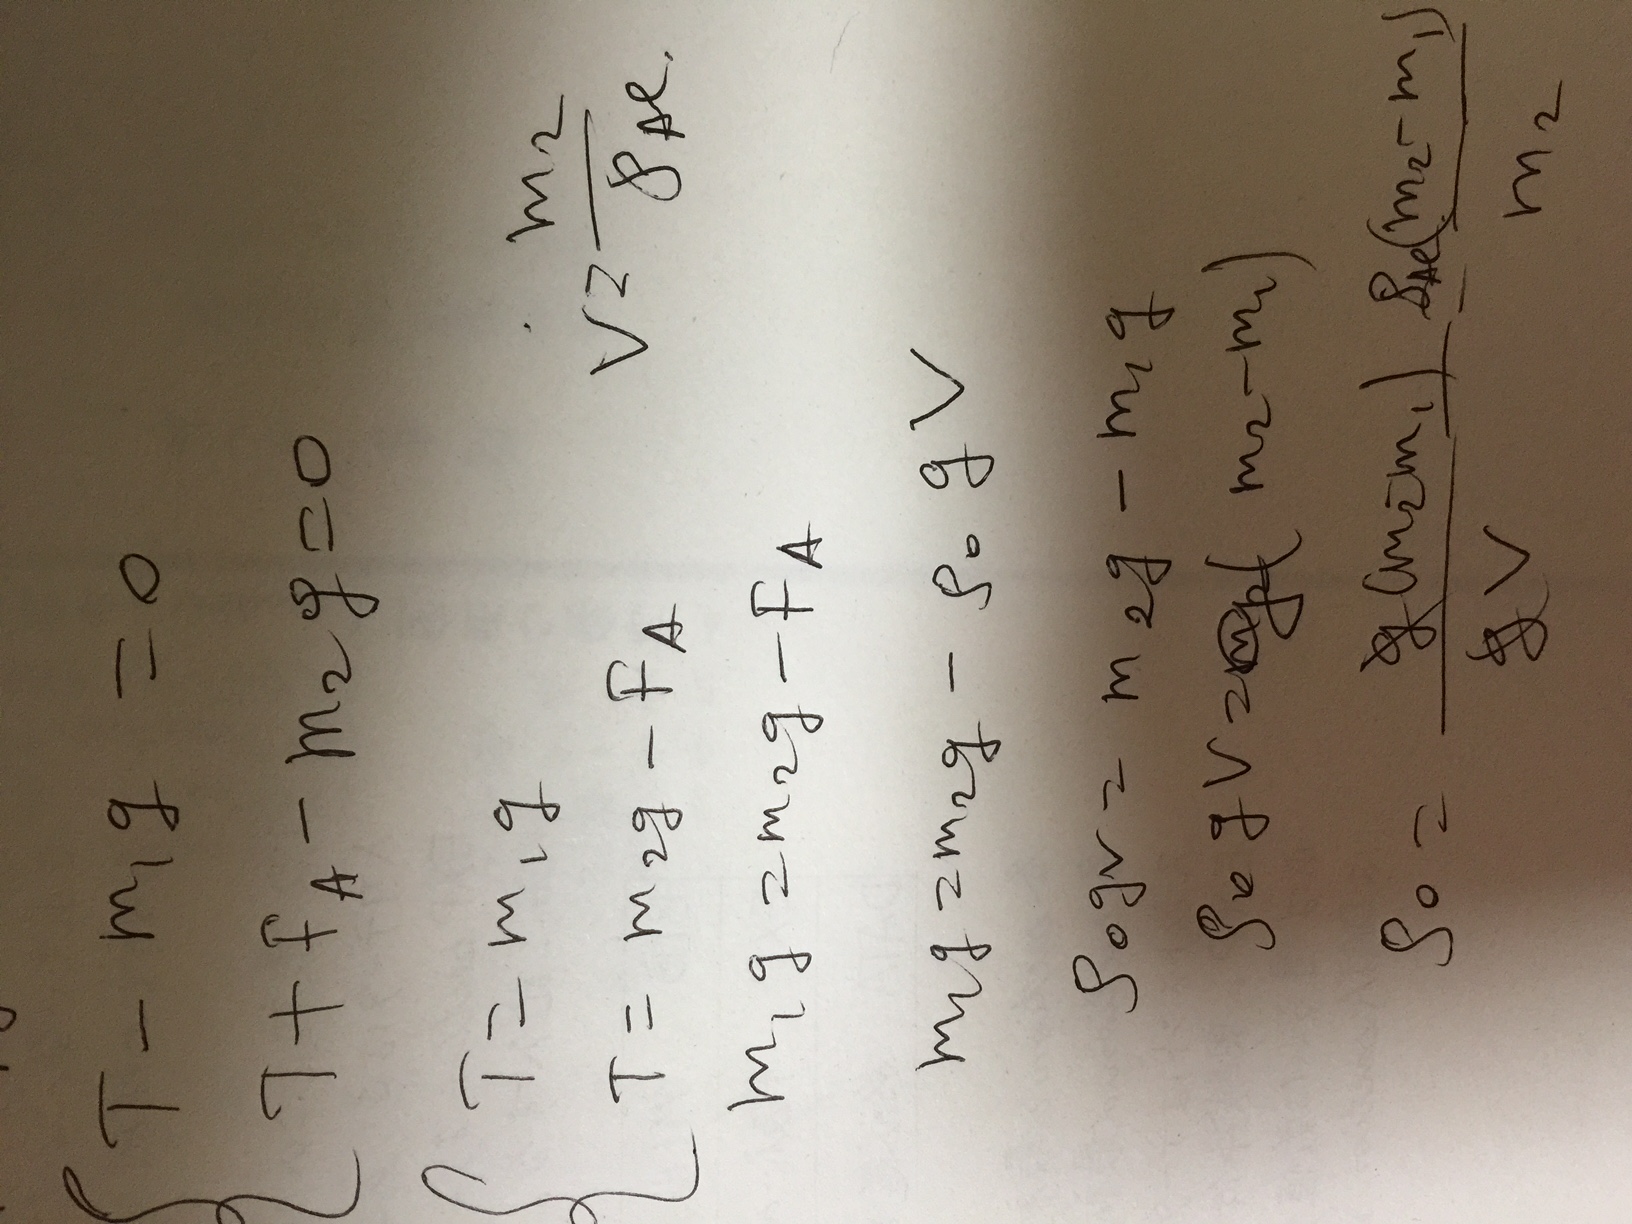 T - m₁g = 0
T + F_A - m₂g = 0
T = m₁g
T = m₂g - F_A
V = m₂/ρ_Al
m₁g = m₂g - F_A
m₁g = m₂g - ρ₀ g V
ρ₀gV = m₂g - m₁g
ρ₀gV = g(m₂ - m₁)
ρ₀ = g(m₂ - m₁)/gV = ρ_Al(m₂ - m₁)/m₂